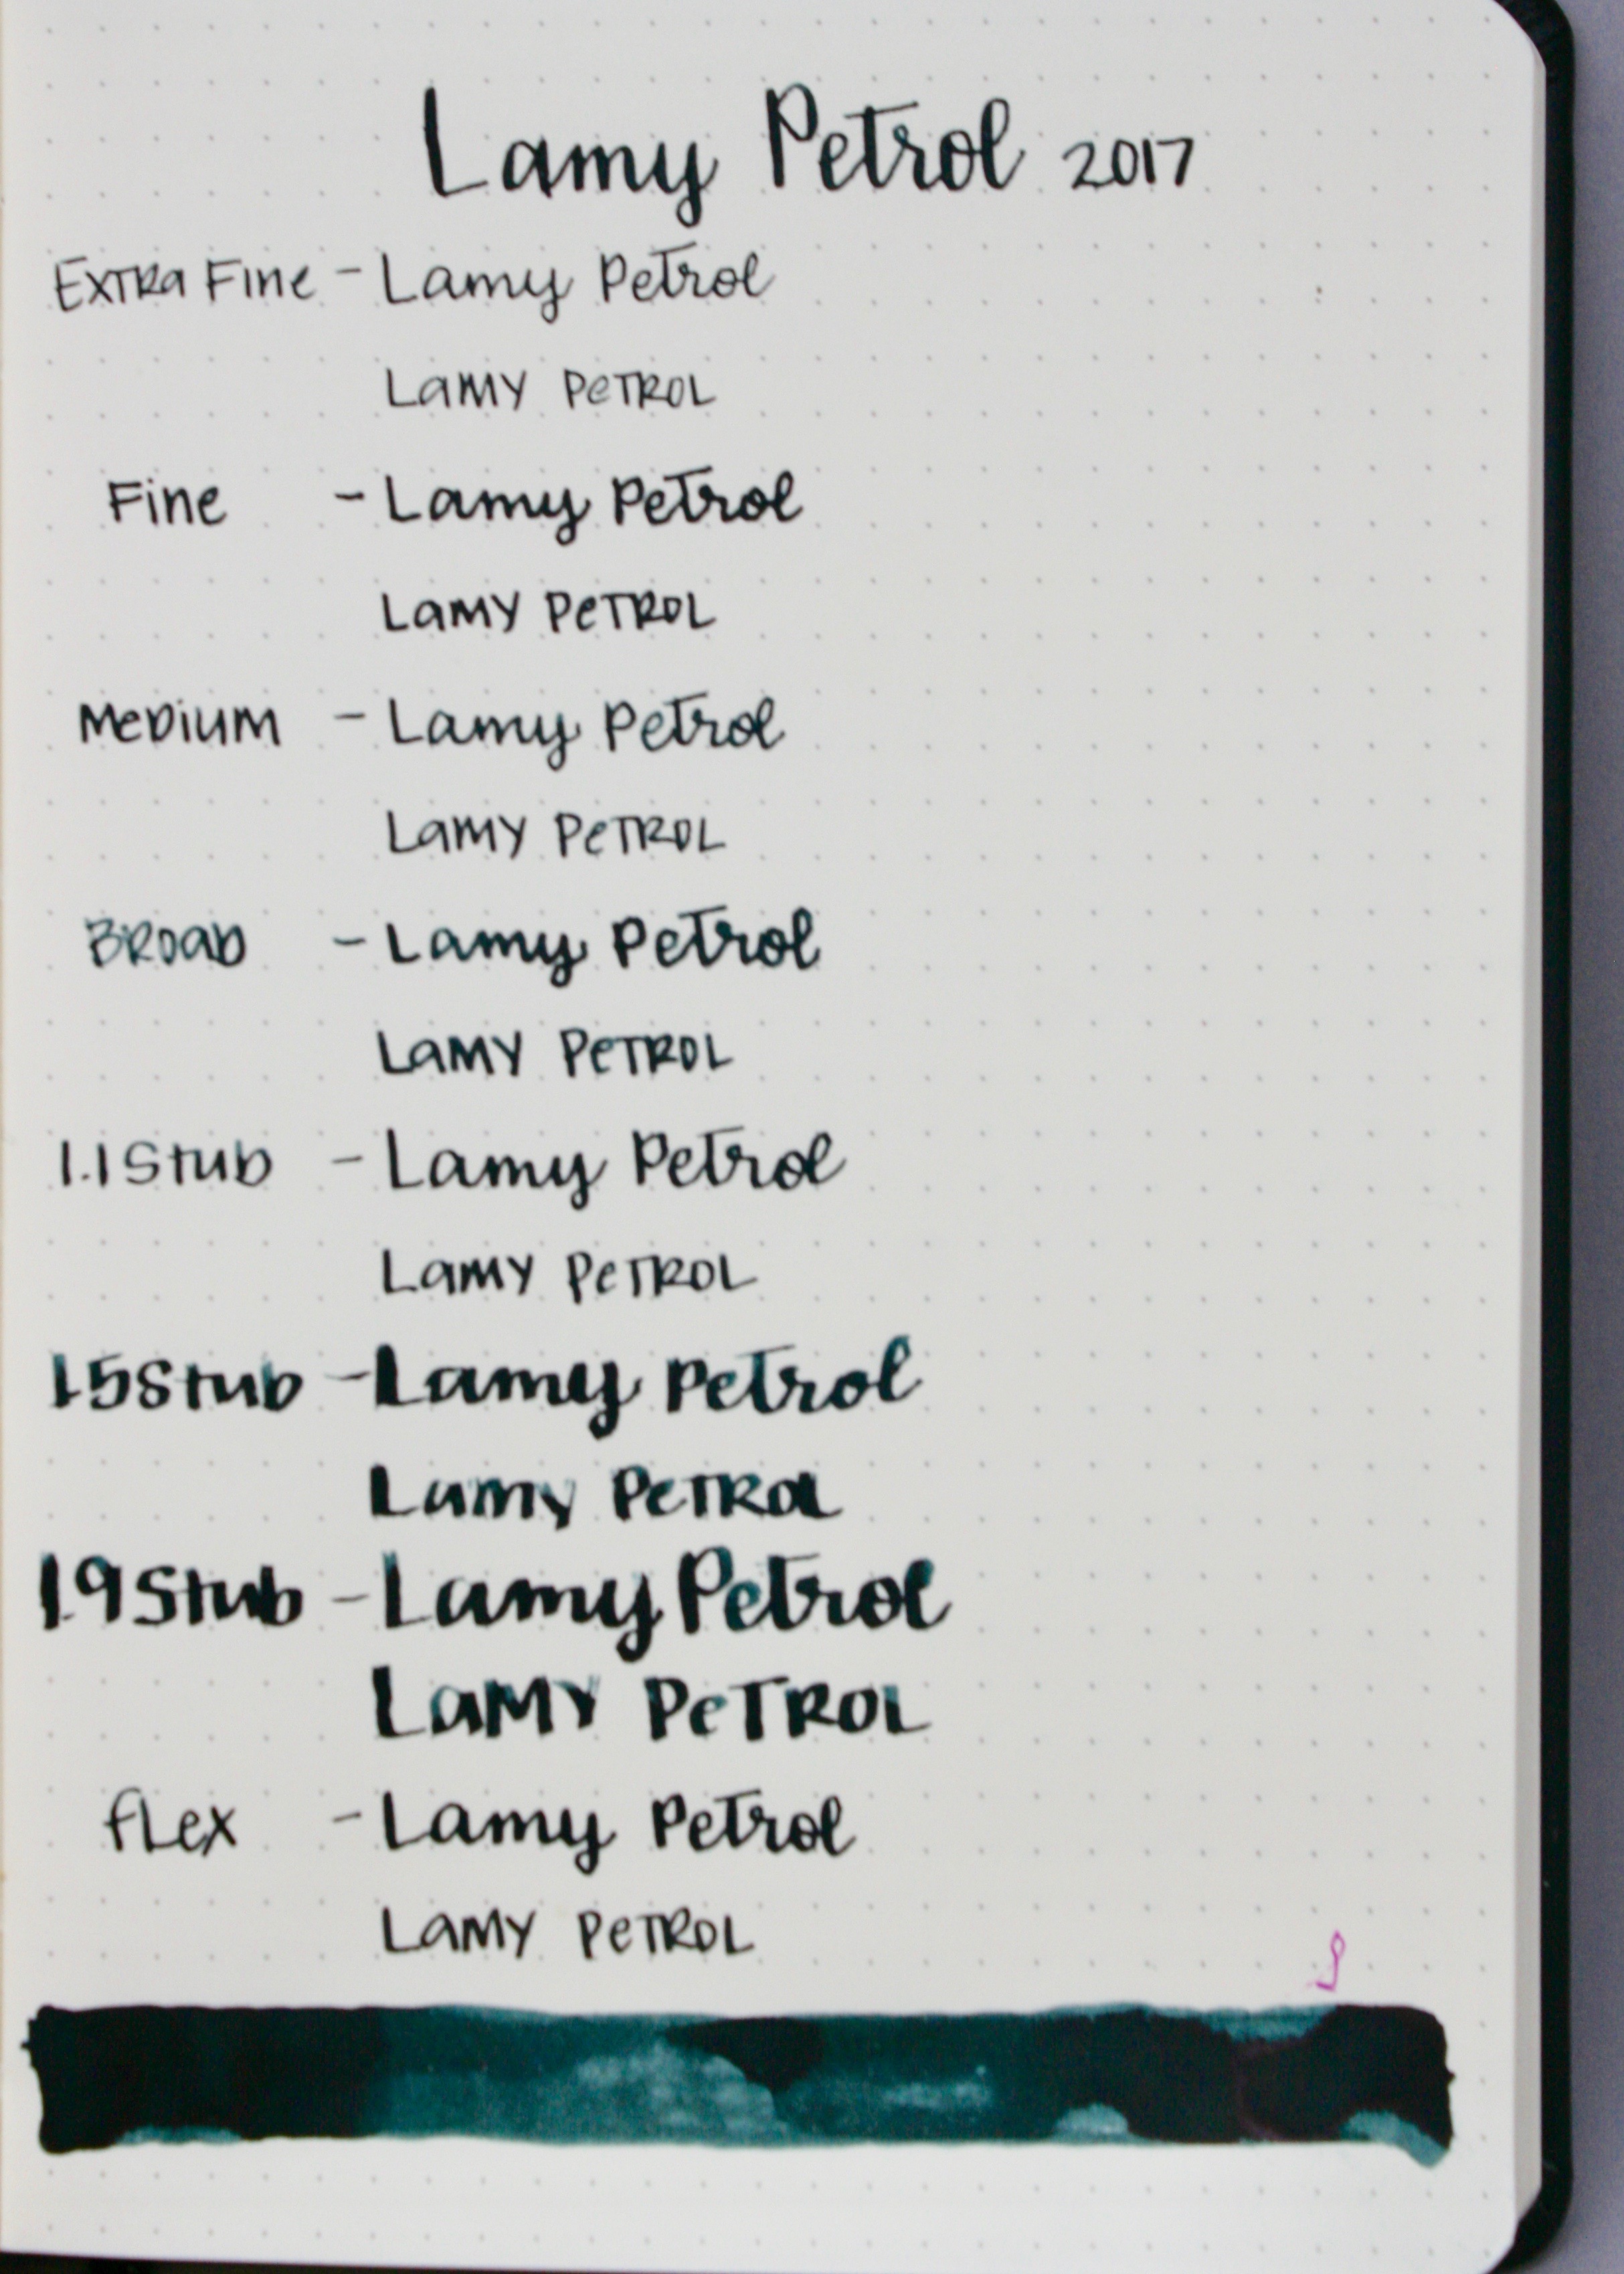 Lamy Petrol 2017
Extra Fine - Lamy Petrol
Lamy Petrol
Fine - Lamy Petrol
Lamy Petrol
Medium - Lamy Petrol
Lamy Petrol
Broad - Lamy Petrol
Lamy Petrol
1.1 Stub - Lamy Petrol
Lamy Petrol
1.5 Stub - Lamy Petrol
Lamy Petrol
1.9 Stub - Lamy Petrol
Lamy Petrol
flex - Lamy Petrol
Lamy Petrol